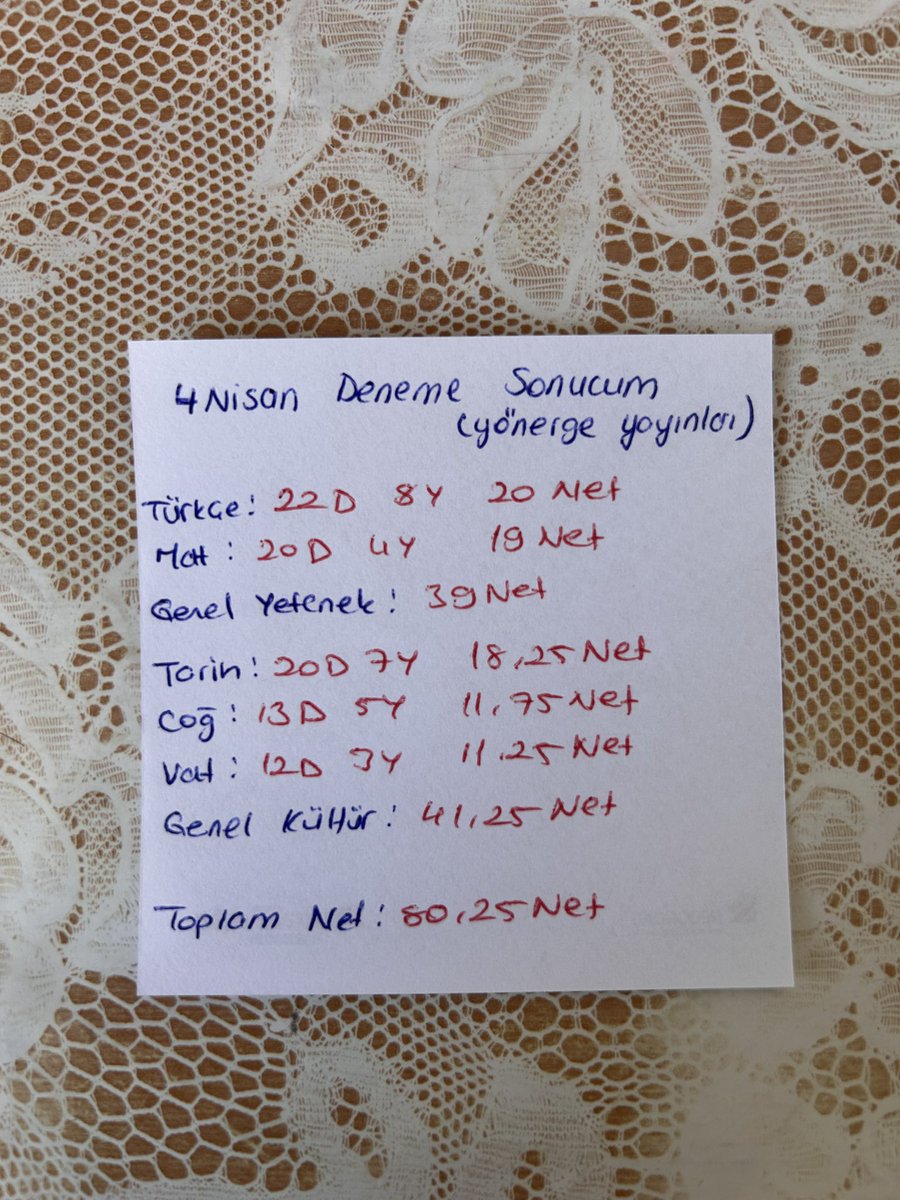 4 Nisan Deneme Sonucum
(yönerge yayınları)
Türkçe: 22D 8Y 20 Net
Mat: 20D 4Y 19 Net
Genel Yetenek: 39 Net
Tarih: 20D 7Y 18,25 Net
Coğ: 13D 5Y 11,75 Net
Vat: 12D 3Y 11.25 Net
Genel Kültür: 41,25 Net
Toplam Net: 80,25 Net